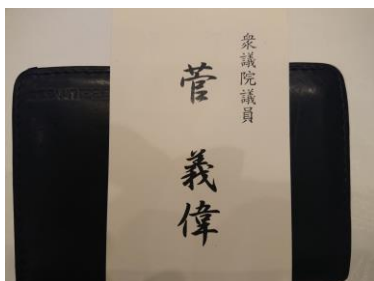 衆議院議員
菅義偉